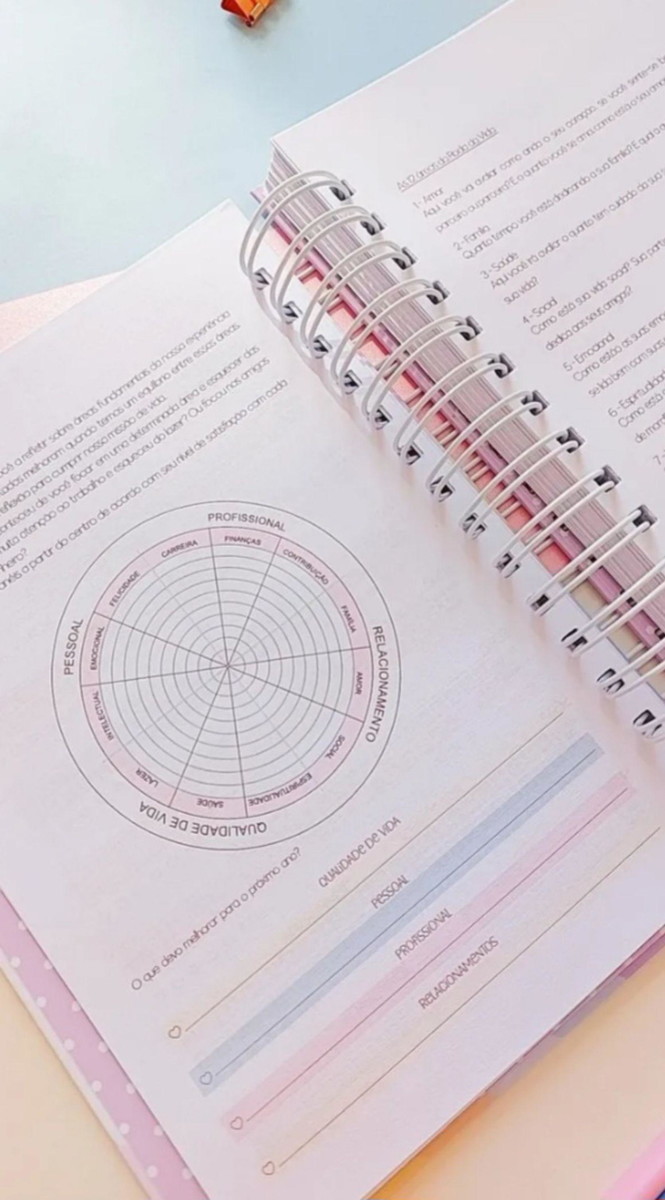 você a refletir sobre áreas fundamentais da nossa experiência
melhoram quando temos um equilíbrio entre essas áreas
para cumprir nossa missão de vida.
de você focar em uma determinada área e esquecer das
atenção ao trabalho e esqueceu do lazer? Ou focou nos amigos
a partir do centro de acordo com seu nível de satisfação com cada
PROFISSIONAL
CARREIRA
FINANÇAS
CONTRIBUIÇÃO
FAMÍLIA
RELACIONAMENTO
AMOR
SOCIAL
ESPIRITUALIDADE
SAÚDE
QUALIDADE DE VIDA
LAZER
INTELECTUAL
PESSOAL
EMOCIONAL
FELICIDADE
O que devo melhorar para o próximo ano?
QUALIDADE DE VIDA
PESSOAL
PROFISSIONAL
RELACIONAMENTOS
As 12 áreas da Roda da Vida
1- Amor
Aqui você vai avaliar como anda o seu coração, se você sente-se
parceiro ou parceira? E o quanto você se ama, como está o seu amor
2- Família
Quanto tempo você está dedicando a sua família? E qual a
3- Saúde
Aqui você irá avaliar o quanto tem cuidado da sua
sua vida?
4- Social
Como está sua vida social? Sua
dedica aos seus amigos?
5- Emocional
Como estão as suas
se lida bem com suas
6- Espiritualidade
Como está
7-